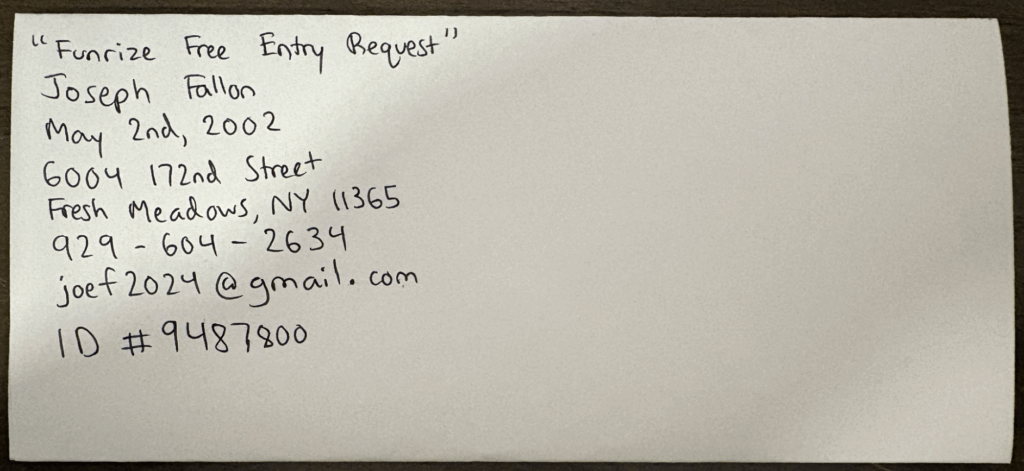 "Funrize Free Entry Request"
Joseph Fallon
May 2nd, 2002
6004 172nd Street
Fresh Meadows, NY 11365
929 - 604 - 2634
joef2024@gmail.com
ID #9487800